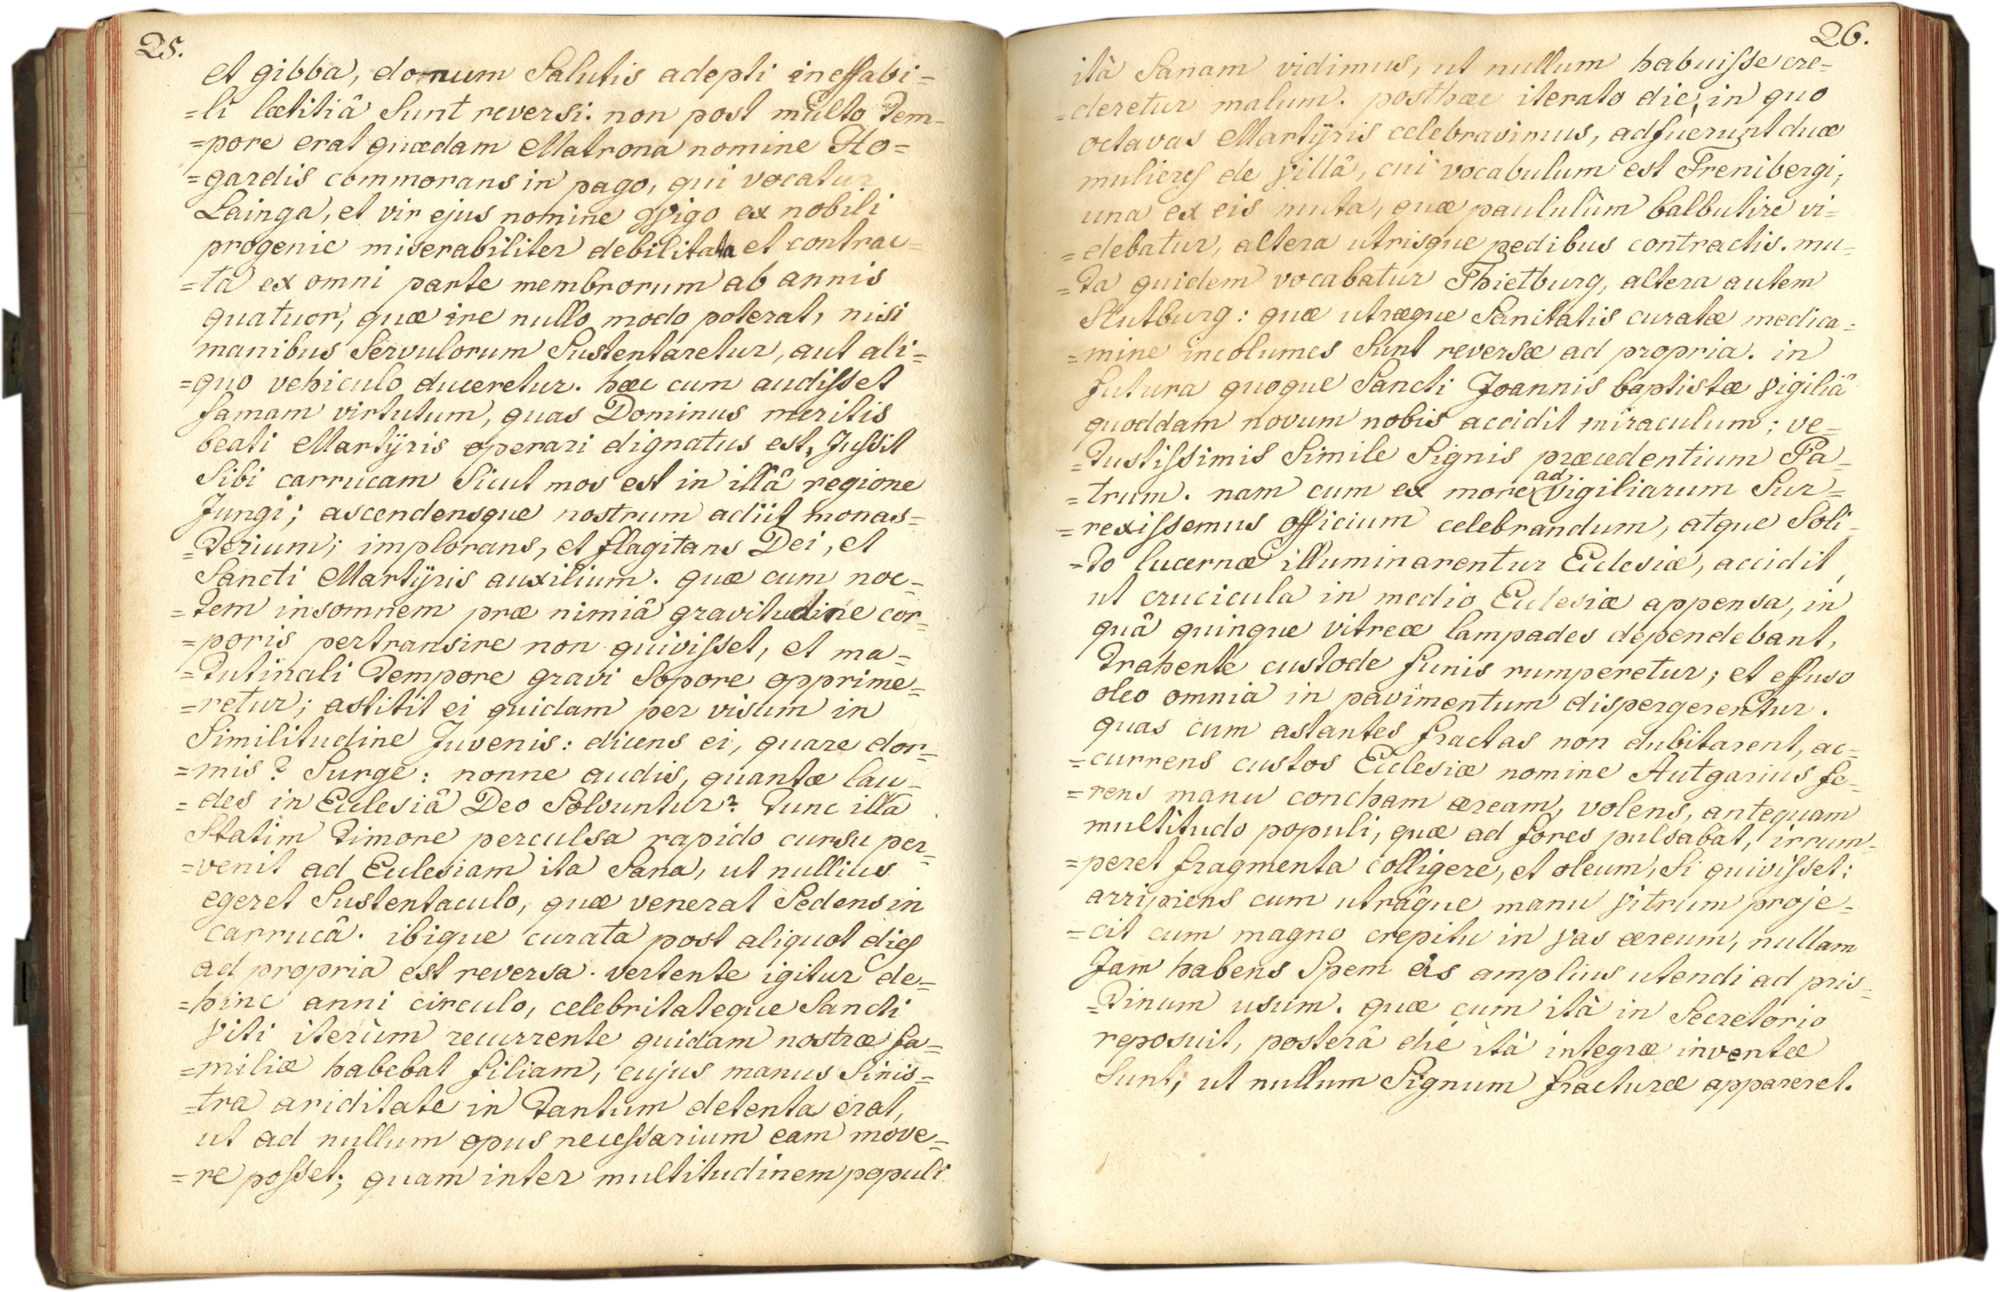 25.
et gibba, donum Salutis adepti ineffabi=
=li lætitiâ Sunt reversi: non post multo tem=
=pore erat quædam Matrona nomine Ho=
=gardis commorans in pago, qui vocatur
Lainga, et vir ejus nomine Wigo ex nobili
progenie miserabiliter debilitata et contrac=
=ta ex omni parte membrorum ab annis
quatuor, quæ ire nullo modo poterat, nisi
manibus Servulorum Sustentaretur, aut ali=
=quo vehiculo duceretur. hæc cum audisset
famam virtutum, quas Dominus meritis
beati Martÿris operari dignatus est, Jussit
Sibi carrucam Sicut mos est in illâ regione
Jungi; ascendensque nostrum adiit monas=
=terium; implorans, et flagitans Dei, et
Sancti Martÿris auxilium. quæ cum noc=
=tem insomnem præ nimiâ gravitudine cor=
=poris pertransire non quivisset, et ma=
=tutinali tempore gravi Sopore opprime=
=retur; astitit ei quidam per visum in
Similitudine Juvenis: dicens ei, quare dor=
=mis? Surge: nonne audis, quantæ lau=
=des in Ecclesiâ Deo Solvuntur? tunc illa
Statim timore perculsa rapido cursu per=
=venit ad Ecclesiam ita Sana, ut nullius
egeret Sustentaculo, quæ venerat Sedens in
carrucâ. ibique curata post aliquot dies
ad propria est reversa. vertente igitur de=
=hinc anni circulo, celebritateque Sancti
Viti iterùm recurrente quidam nostræ fa=
=miliæ habebat filiam, cujus manus Sinis=
=tra ariditate in tantum detenta erat,
ut ad nullum opus necessarium eam move=
=re posset; quam inter multitudinem populi
26.
ità Sanam vidimus, ut nullum habuisse cre=
=deretur malum. posthæc iterato die, in quo
octavas Martÿris celebravimus, adfuerunt duæ
mulieres de Villâ, cui vocabulum est Frenibergi;
una ex eis muta, quæ paululùm balbutire vi=
=debatur, altera utrisque pedibus contractis. mu=
=ta quidem vocabatur Thietburg, altera autem
Stutburg: quæ utræque Sanitatis curatæ medica=
=mine incolumes Sunt reversæ ad propria. in
futura quoque Sancti Joannis baptistæ Vigiliâ
quoddam novum nobis accidit miraculum; ve=
=tustissimis Simile Signis præcedentium Pa=
=trum. nam cum ex more ad Vigiliarum Sur=
=rexissemus officium celebrandum, atque Soli=
=to lucernæ illuminarentur Ecclesiæ, accidit,
ut crucicula in medio Ecclesiæ appensa, in
quâ quinque vitreæ lampades dependebant,
trahente custode funis rumperetur; et effuso
oleo omnia in pavimentum dispergerentur.
quas cum astantes fractas non dubitarent, ac=
=currens custos Ecclesiæ nomine Autgarius fe=
=rens manu concham æream, volens, antequam
multitudo populi, quæ ad fores pulsabat, irrum=
=peret fragmenta colligere, et oleum, Si quivisset:
arripiens cum utrâque manu Vitrum proje=
=cit cum magno crepitu in Vas æreum, nullam
Jam habens Spem eis amplius utendi ad pris=
=tinum usum. quæ cum ità in Secretorio
reposuit, posterâ die ità integræ inventæ
Sunt, ut nullum Signum fracturæ appareret.